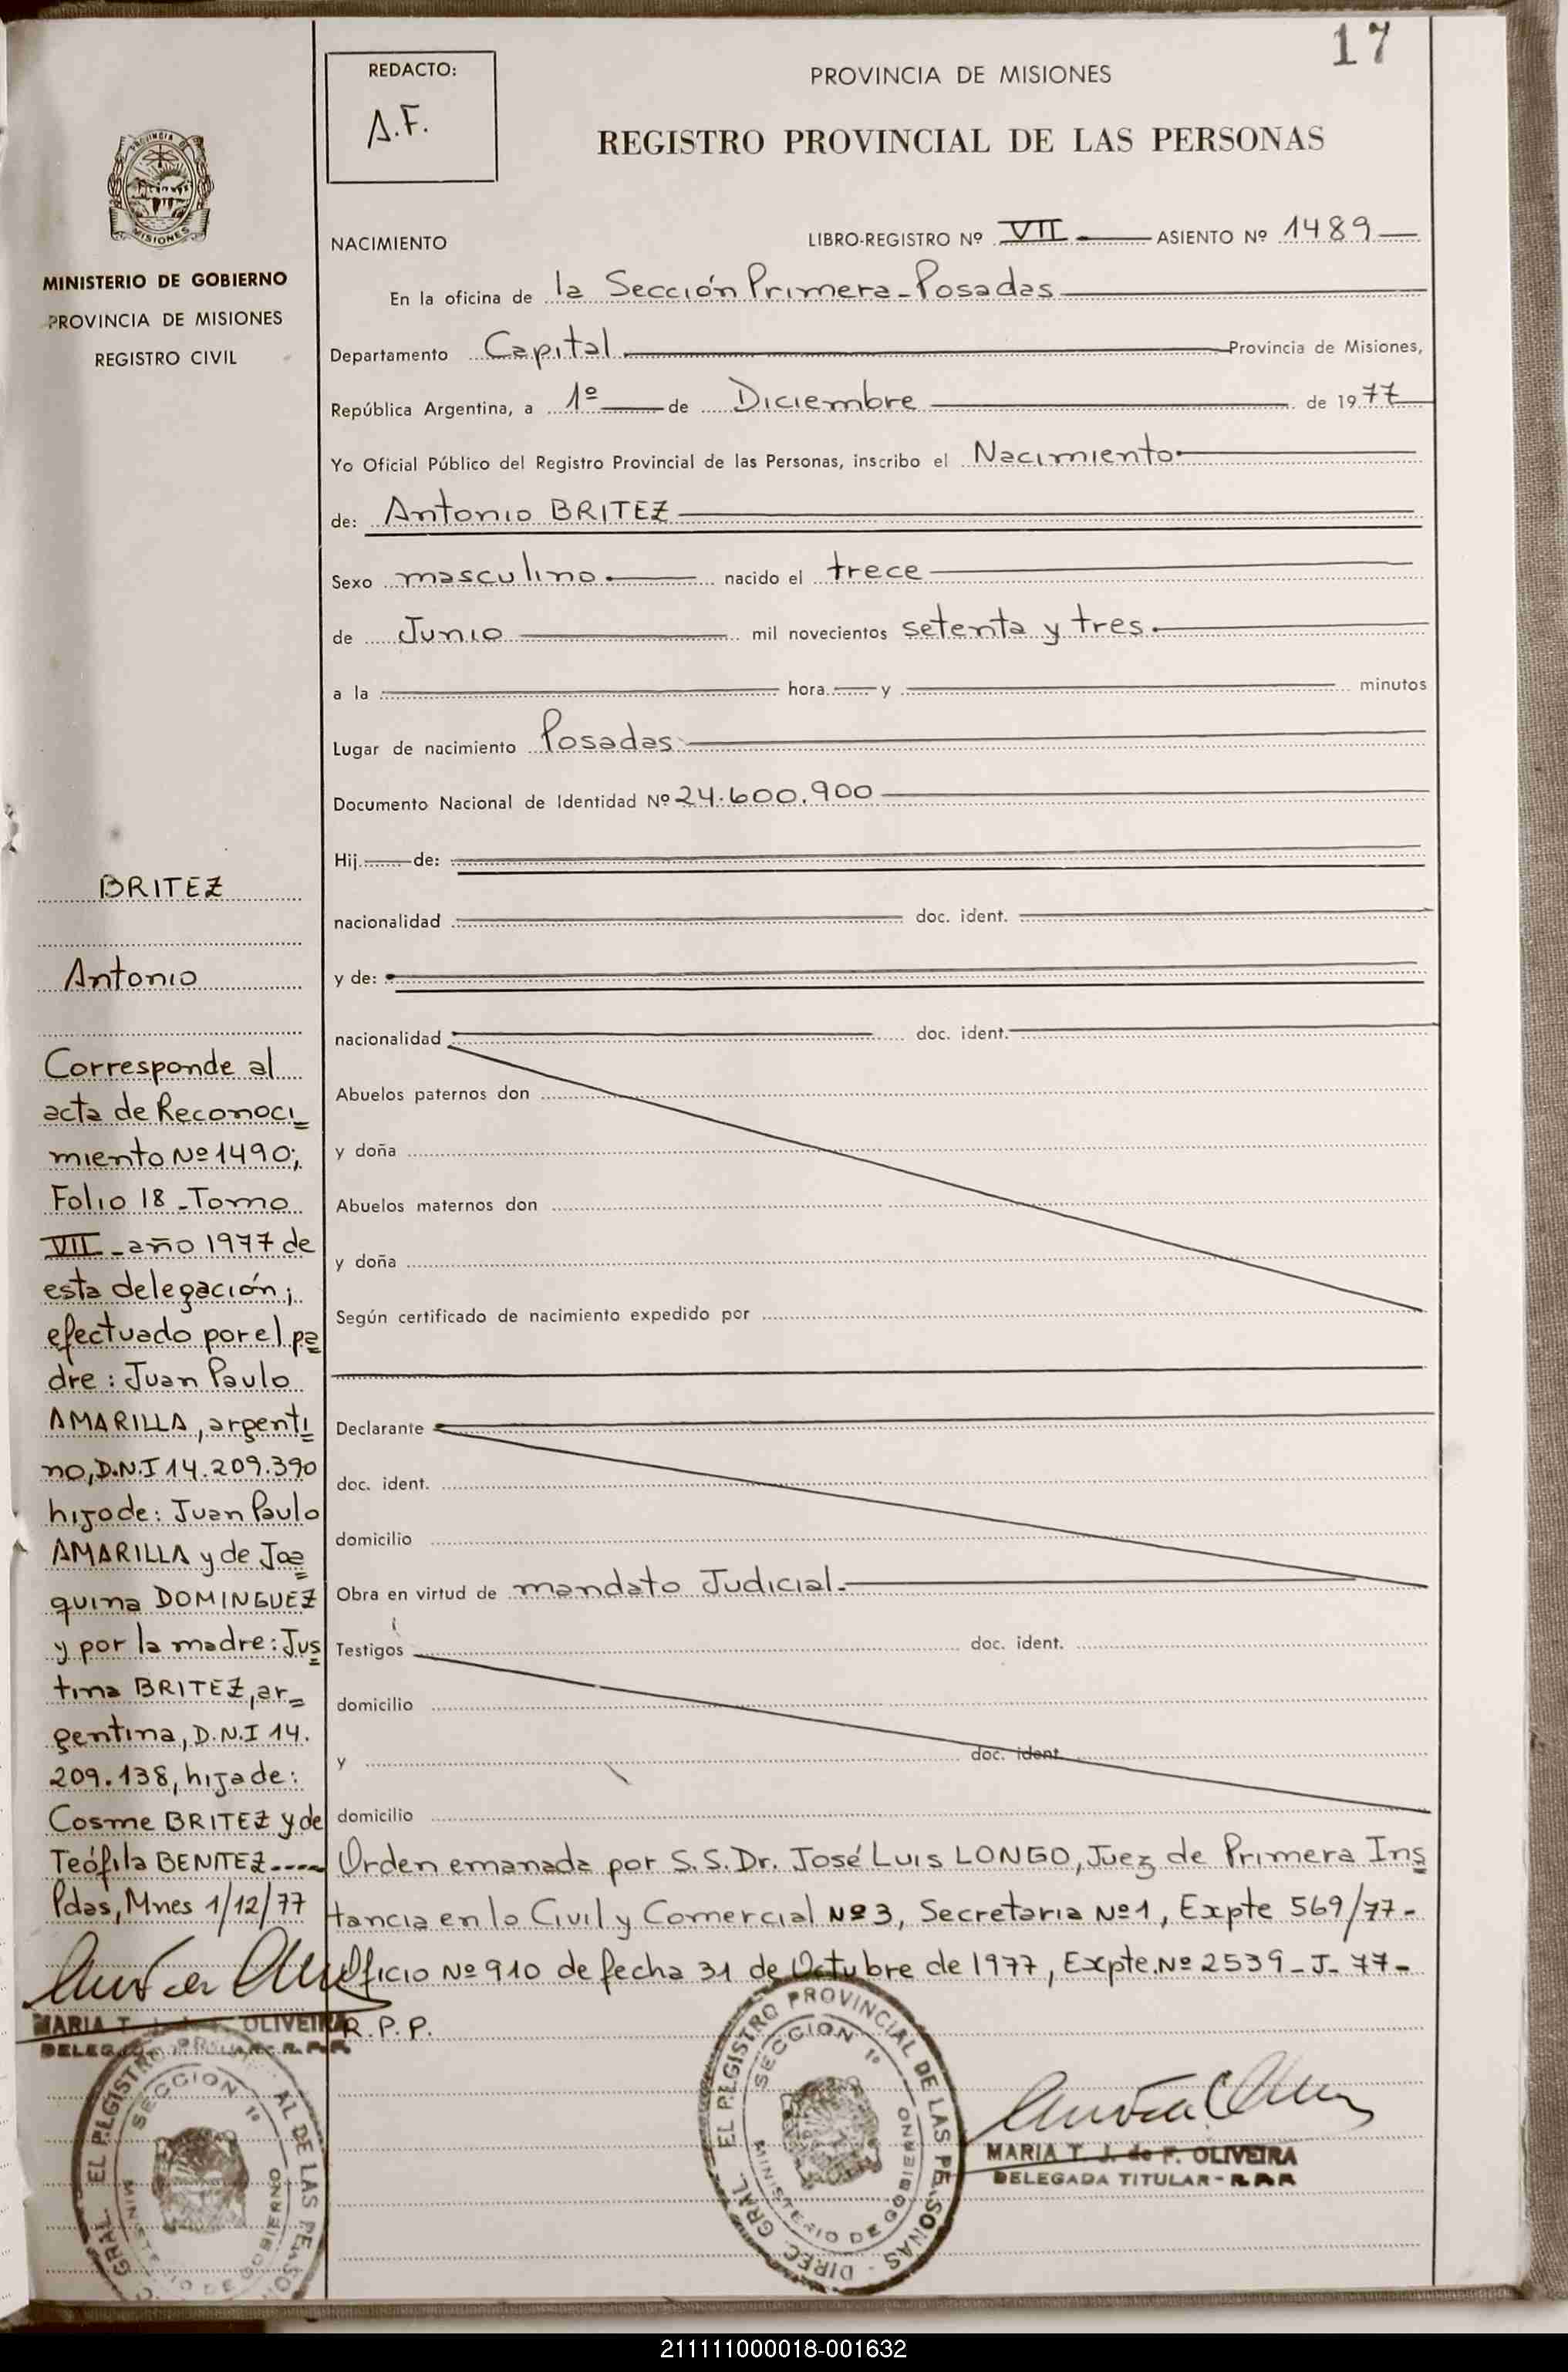 17
REDACTO:
A.F.
PROVINCIA DE MISIONES
REGISTRO PROVINCIAL DE LAS PERSONAS
PROVINCIA DE
MISIONES
MINISTERIO DE GOBIERNO
PROVINCIA DE MISIONES
REGISTRO CIVIL
NACIMIENTO LIBRO-REGISTRO Nº VII ASIENTO Nº 1489
En la oficina de la Sección Primera - Posadas
Departamento Capital Provincia de Misiones,
República Argentina, a 1º de Diciembre de 1977
Yo Oficial Público del Registro Provincial de las Personas, inscribo el Nacimiento
de: Antonio BRITEZ
Sexo masculino nacido el trece
de Junio mil novecientos setenta y tres.
a la hora y minutos
Lugar de nacimiento Posadas
Documento Nacional de Identidad Nº 24.600.900
Hij de:
nacionalidad doc. ident.
y de:
nacionalidad doc. ident.
Abuelos paternos don
y doña
Abuelos maternos don
y doña
Según certificado de nacimiento expedido por
Declarante
doc. ident.
domicilio
Obra en virtud de mandato Judicial.
Testigos doc. ident.
domicilio
y doc. ident.
domicilio
Orden emanada por S.S. Dr. José Luis LONGO, Juez de Primera Ins
tancia en lo Civil y Comercial Nº 3, Secretaria Nº 1, Expte 569/77-
Oficio Nº 910 de fecha 31 de Octubre de 1977, Expte. Nº 2539-J-77-
R.P.P.
BRITEZ
Antonio
Corresponde al
acta de Reconoci
miento Nº 1490;
Folio 18 - Tomo
VII - año 1977 de
esta delegación;
efectuado por el pa
dre: Juan Paulo
AMARILLA, argenti
no, D.N.I 14.209.390
hijo de: Juan Paulo
AMARILLA y de Joa
quina DOMINGUEZ
y por la madre: Jus
tina BRITEZ, ar=
gentina, D.N.I 14.
209.138, hija de:
Cosme BRITEZ y de
Teófila BENITEZ----
Pdas, Mnes 1/12/77
MARIA T. OLIVEIRA
EL REGISTRO PROVINCIAL DE LAS PERSONAS - DIREC. GRAL.
SECCION 1º
MINISTERIO DE GOBIERNO
MARIA T. J. de F. OLIVEIRA
DELEGADA TITULAR - R.P.P.
211111000018-001632